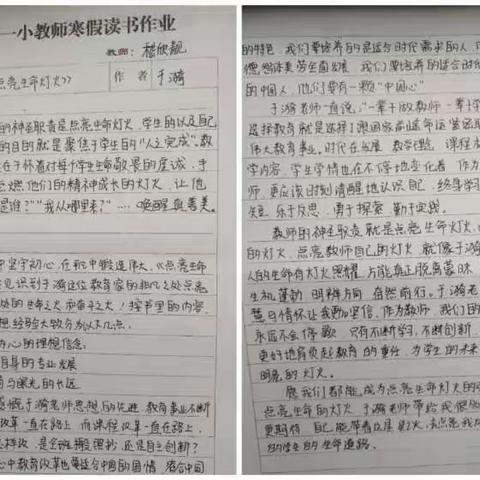 一小教师寒假读书作业
教师:
点亮生命灯火》
作者 于漪
的神圣职责是点亮生命灯火,学生的以及自己
的目的就是聚焦于学生的"人之完成",教
在于怀着对每个学生生命敬畏的虔诚,手
燃他们的精神成长的灯火,让他
是谁?""我从哪里来?"……唤醒真善美。
坚守初心,在和中锻造伟大,《点亮生命
见识到于漪这位教育家的非凡之处点亮
按书里的内容,
想、经验大致分为以下几点:
为心的理想信念;
自身的专业发展
与曝光的长远
感慨于漪老师思想的先进,教育事业不断
改革一直在路上,而课程改革一直在路上,
是全班搬理抄,还是自主创新?
心中教育改革也要适合中国的国情,落合中国
的特色,我们要培养的是适合时代需求的人,
德智体美劳全面发展,我们要培养的适合时代
的中国人,他们要有一颗"中国心"
于漪老师一直说,"一辈子做教师,一辈子学
选择教育就是选择了跟国家命运
伟大教育事业。时代在发展,教学理念、课程
学内容、学生学情也在不停地变化着,作为
师,更应该时刻清醒地认识自己,终身学习
乐于反思,勇于探索,勤于实践。
教师的神圣职责就是点亮生命灯火,
的灯火,点亮教师自己的灯火,就像于漪
人的生命有灯火照耀,方能真正脱离蒙昧,
生机蓬勃,明辨方向,奋然前行。于漪老
慧与情怀让我更加坚信,作为教师,我们的
永远不会停歇,只有不断学习,不断创新,
更好地肩负起教育的重任,为学生的未来
明亮的灯火。
愿我们都能成为点亮生命灯火的
点亮生命的灯火,于漪老师带给我
更期待自己,能带着点星火,去点亮我
的学生的生命道路。